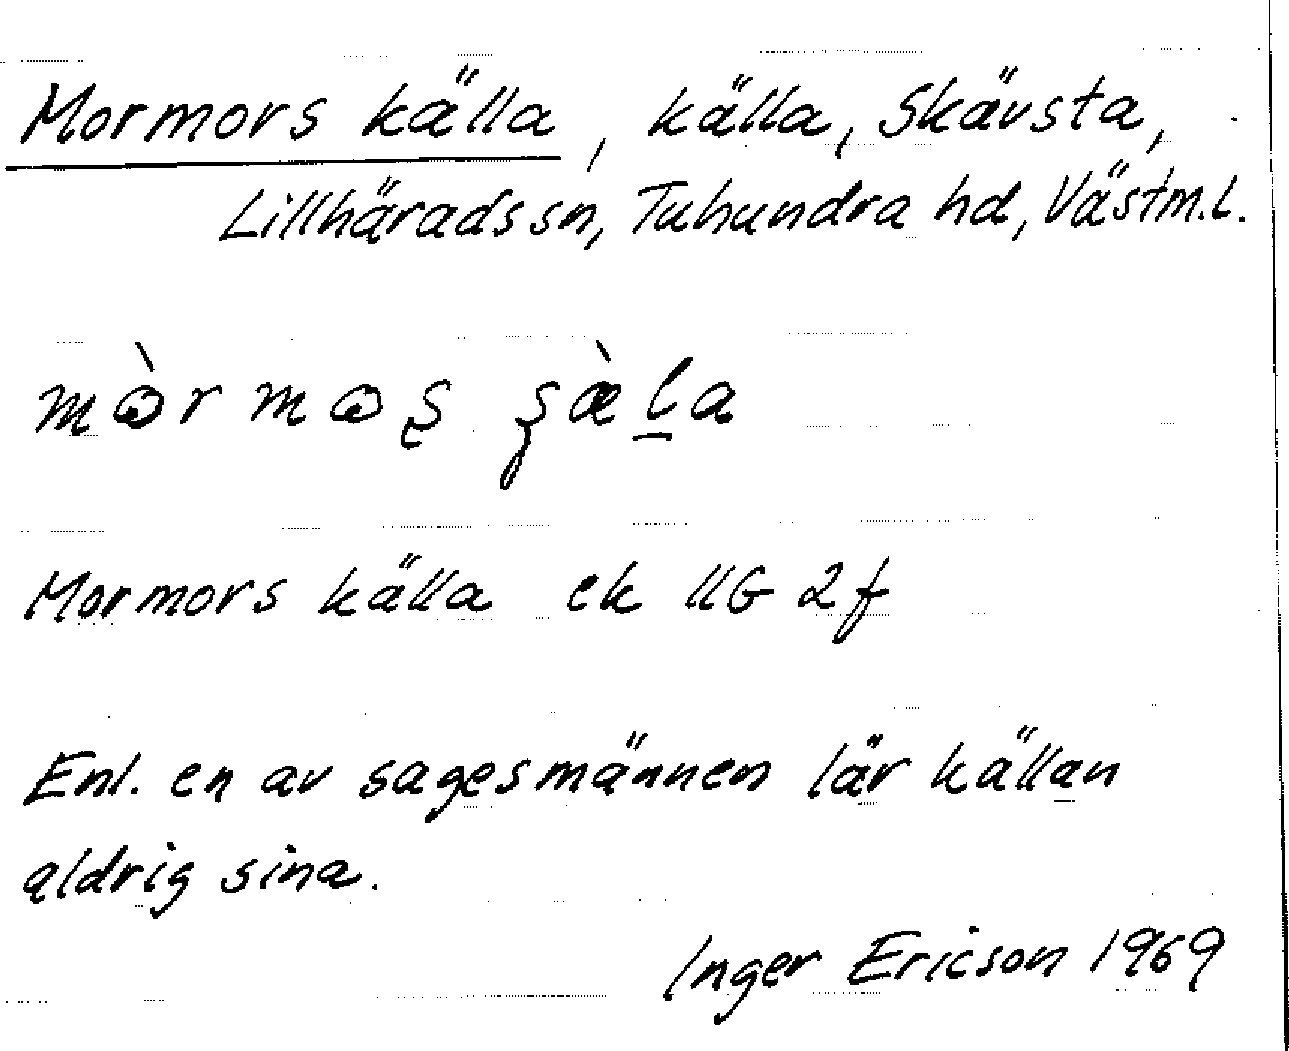 Mormors källa, källa, Skävsta,
Lillhärads sn, Tuhundra hd, Västm.l.
Mormors källa ek 11G 2f
Enl. en av sagesmännen lär källan
aldrig sina.
Inger Ericson 1969